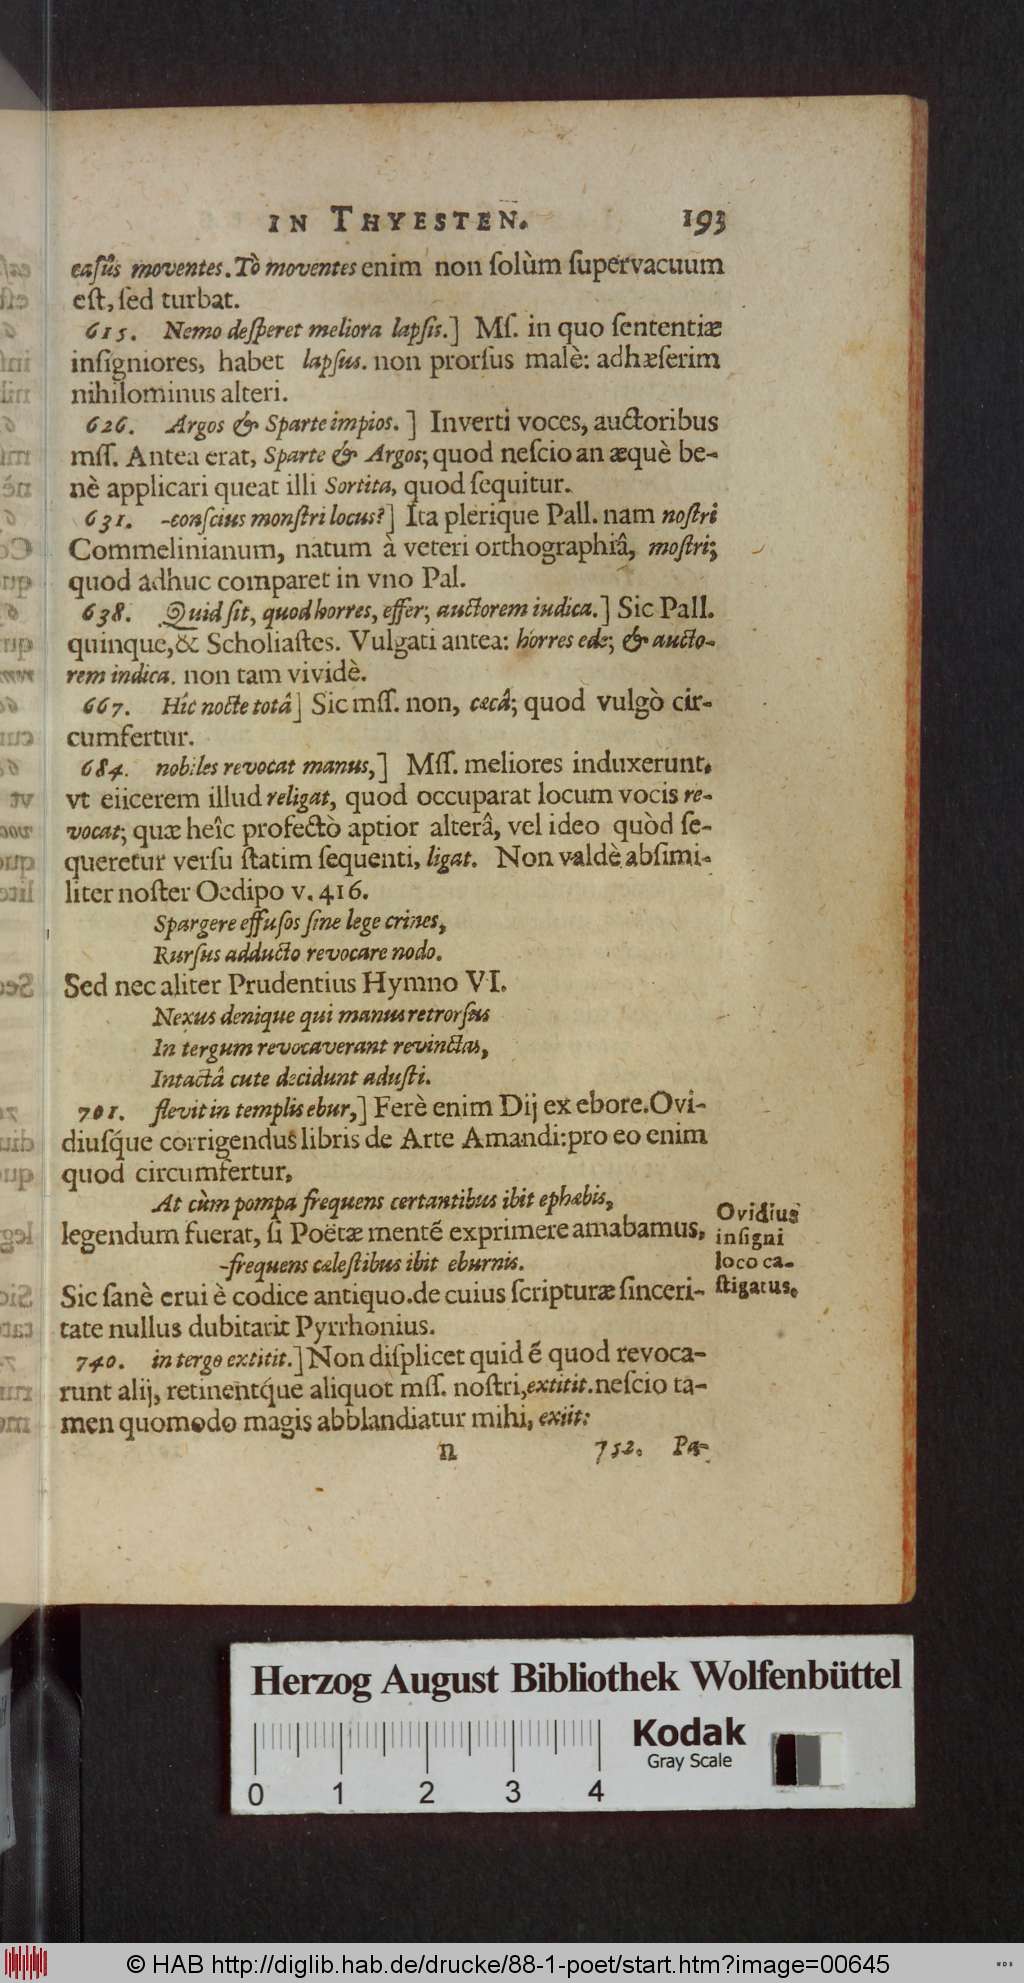 IN THYESTEN. 193
casûs moventes. Tò moventes enim non ſolùm ſupervacuum
eſt, ſed turbat.
615. Nemo deſperet meliora lapſis.] Mſ. in quo ſententiæ
inſigniores, habet lapſus. non prorſus malè: adhæſerim
nihilominus alteri.
626. Argos & Sparte impios.] Inverti voces, auctoribus
mſſ. Antea erat, Sparte & Argos; quod neſcio an æquè be-
nè applicari queat illi Sortita, quod ſequitur.
631. -conſcius monſtri locus?] Ita plerique Pall. nam noſtri
Commelinianum, natum à veteri orthographiâ, moſtri;
quod adhuc comparet in vno Pal.
638. Quid ſit, quod horres, effer; auctorem indica.] Sic Pall.
quinque, & Scholiaſtes. Vulgati antea: horres ede; & aucto-
rem indica. non tam vividè.
667. Hîc nocte totâ] Sic mſſ. non, cæcâ; quod vulgò cir-
cumfertur.
684. nobiles revocat manus,] Mſſ. meliores induxerunt,
vt eiicerem illud religat, quod occuparat locum vocis re-
vocat; quæ heîc profectò aptior alterâ, vel ideo quòd ſe-
queretur verſu ſtatim ſequenti, ligat. Non valdè abſimi-
liter noſter Oedipo v. 416.
Spargere effuſos ſine lege crines,
Rurſus adducto revocare nodo.
Sed nec aliter Prudentius Hymno VI.
Nexus denique qui manus retrorſus
In tergum revocaverant revinctas,
Intactâ cute decidunt aduſti.
701. flevit in templis ebur,] Ferè enim Dij ex ebore. Ovi-
diuſq́ue corrigendus libris de Arte Amandi: pro eo enim
quod circumfertur,
At cùm pompa frequens certantibus ibit ephæbis,
legendum fuerat, ſi Poëtæ menté exprimere amabamus,
-frequens cæleſtibus ibit eburnis.
Sic ſanè erui è codice antiquo. de cuius ſcripturæ ſinceri-
tate nullus dubitarit Pyrrhonius.
Ovidius
inſigni
loco ca-
ſtigatus.
740. in tergo extitit.] Non diſplicet quid é quod revoca-
runt alij, retinentq́ue aliquot mſſ. noſtri, extitit. neſcio ta-
men quomodo magis abblandiatur mihi, exiit:
n 752. Pa-
Herzog August Bibliothek Wolfenbüttel
Kodak
Gray Scale
0 1 2 3 4
© HAB http://diglib.hab.de/drucke/88-1-poet/start.htm?image=00645